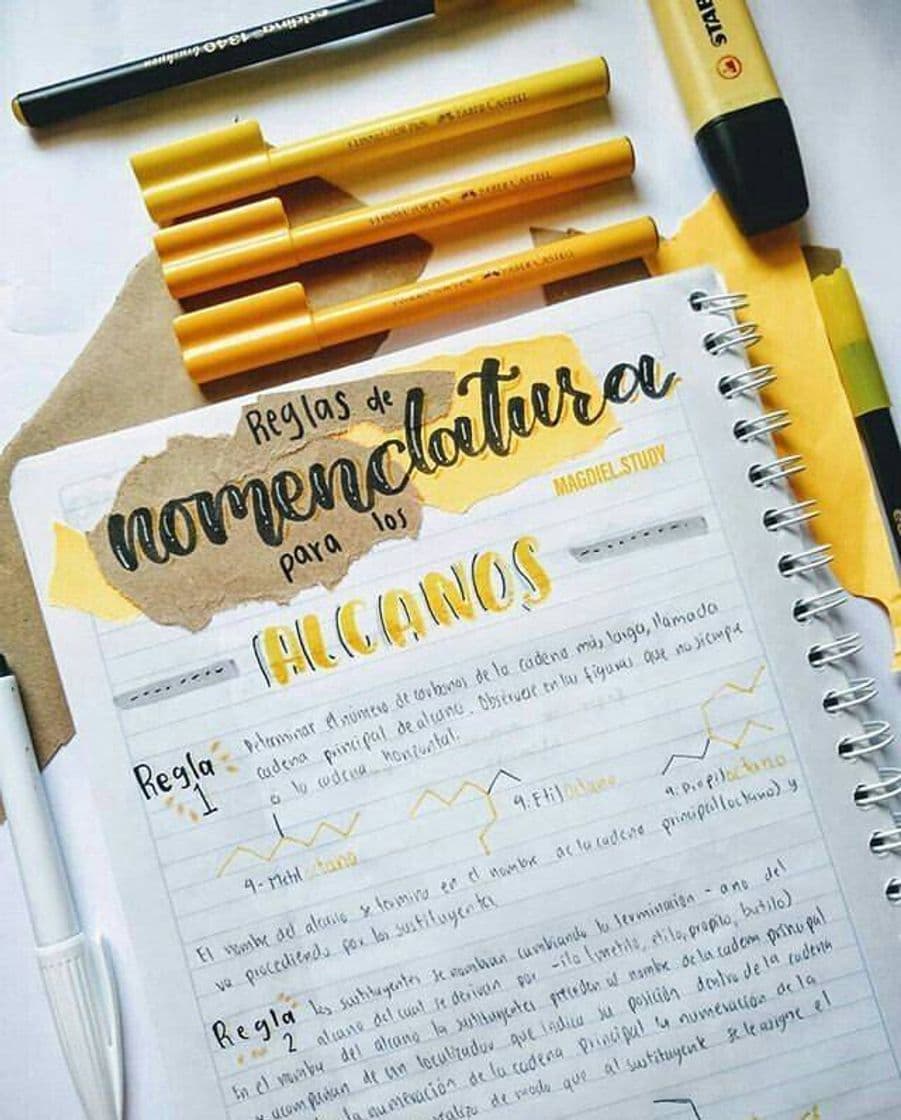 edding 1340 brushpen
STAB
FABER-CASTELL
FABER-CASTELL
FABER-CASTELL
Reglas de
nomenclatura
para los
MAGDIEL.STUDY
ALCANOS
Regla 1
Determinar el número de carbonos de la cadena más larga, llamada
cadena principal de alcano. Obsérvese en las figuras que no siempre
o la cadena horizontal.
4-Metil octano
4-Etil octano
4-propil octano
El nombre del alcano se termina en el nombre de la cadena principal (octano) y
va procediendo por los sustituyentes
Regla 2
los sustituyentes se nombran cambiando la terminación -ano del
alcano del cual se derivan por -ilo (metilo, etilo, propilo, butilo)
En el nombre del alcano los sustituyentes preceden al nombre de la cadena principal
y acompañan de un localizador que indica su posición dentro de la cadena
la numeración de la cadena principal la numeración de la
de modo que al sustituyente se le asigne el